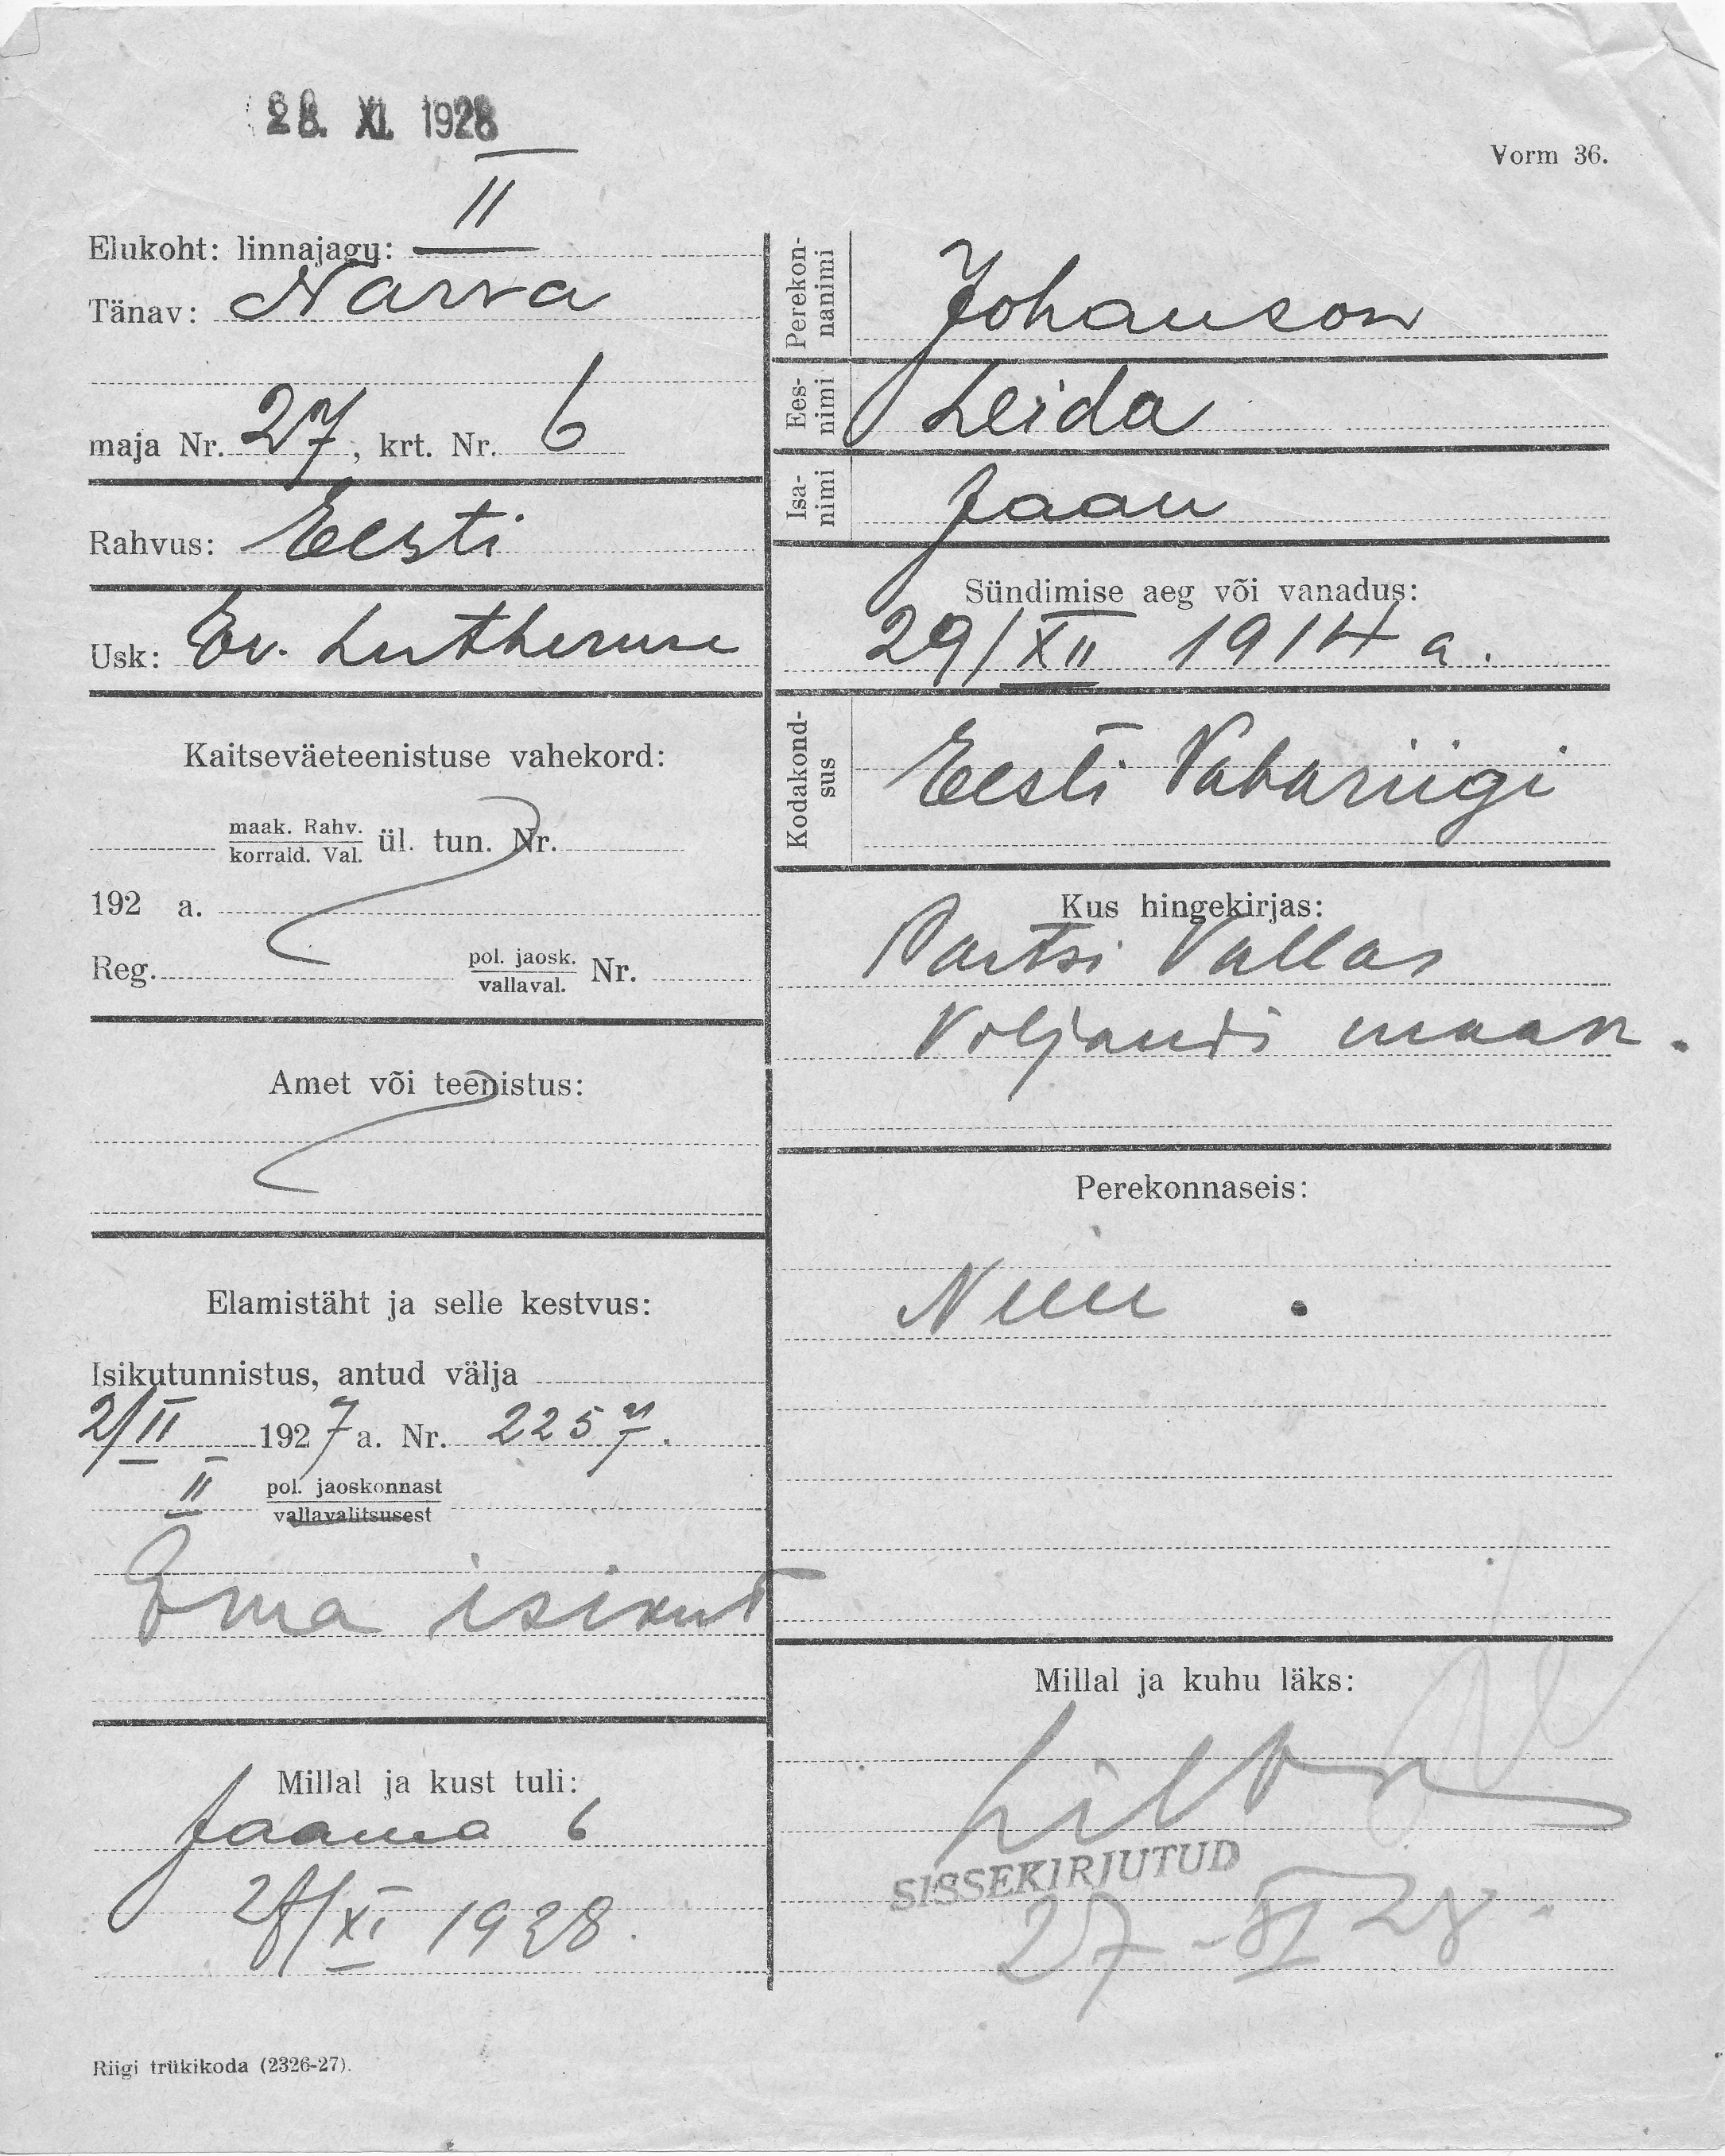 28. XI. 1928
Vorm 36.
Elukoht: linnajagu: II
Tänav: Narva
maja Nr. 27, krt. Nr. 6
Rahvus: Eesti
Usk: Ev. Lutheruse
Kaitseväeteenistuse vahekord:
maak. Rahv.
korrald. Val. ül. tun. Nr.
192 a.
Reg. pol. jaosk.
vallaval. Nr.
Amet või teenistus:
Elamistäht ja selle kestvus:
Isikutunnistus, antud välja
2/II 1927 a. Nr. 2257.
II pol. jaoskonnast
vallavalitsusest
Ema isikut
Millal ja kust tuli:
Jaama 6
28/XI 1928.
Riigi trükikoda (2326-27).
Perekon-
nanimi Johanson
Ees-
nimi Leida
Isa-
nimi Jaan
Sündimise aeg või vanadus:
29/XII 1914 a.
Kodakond-
sus Eesti Vabariigi
Kus hingekirjas:
Vallas
Viljandi maak.
Perekonnaseis:
Millal ja kuhu läks:
SISSEKIRJUTUD